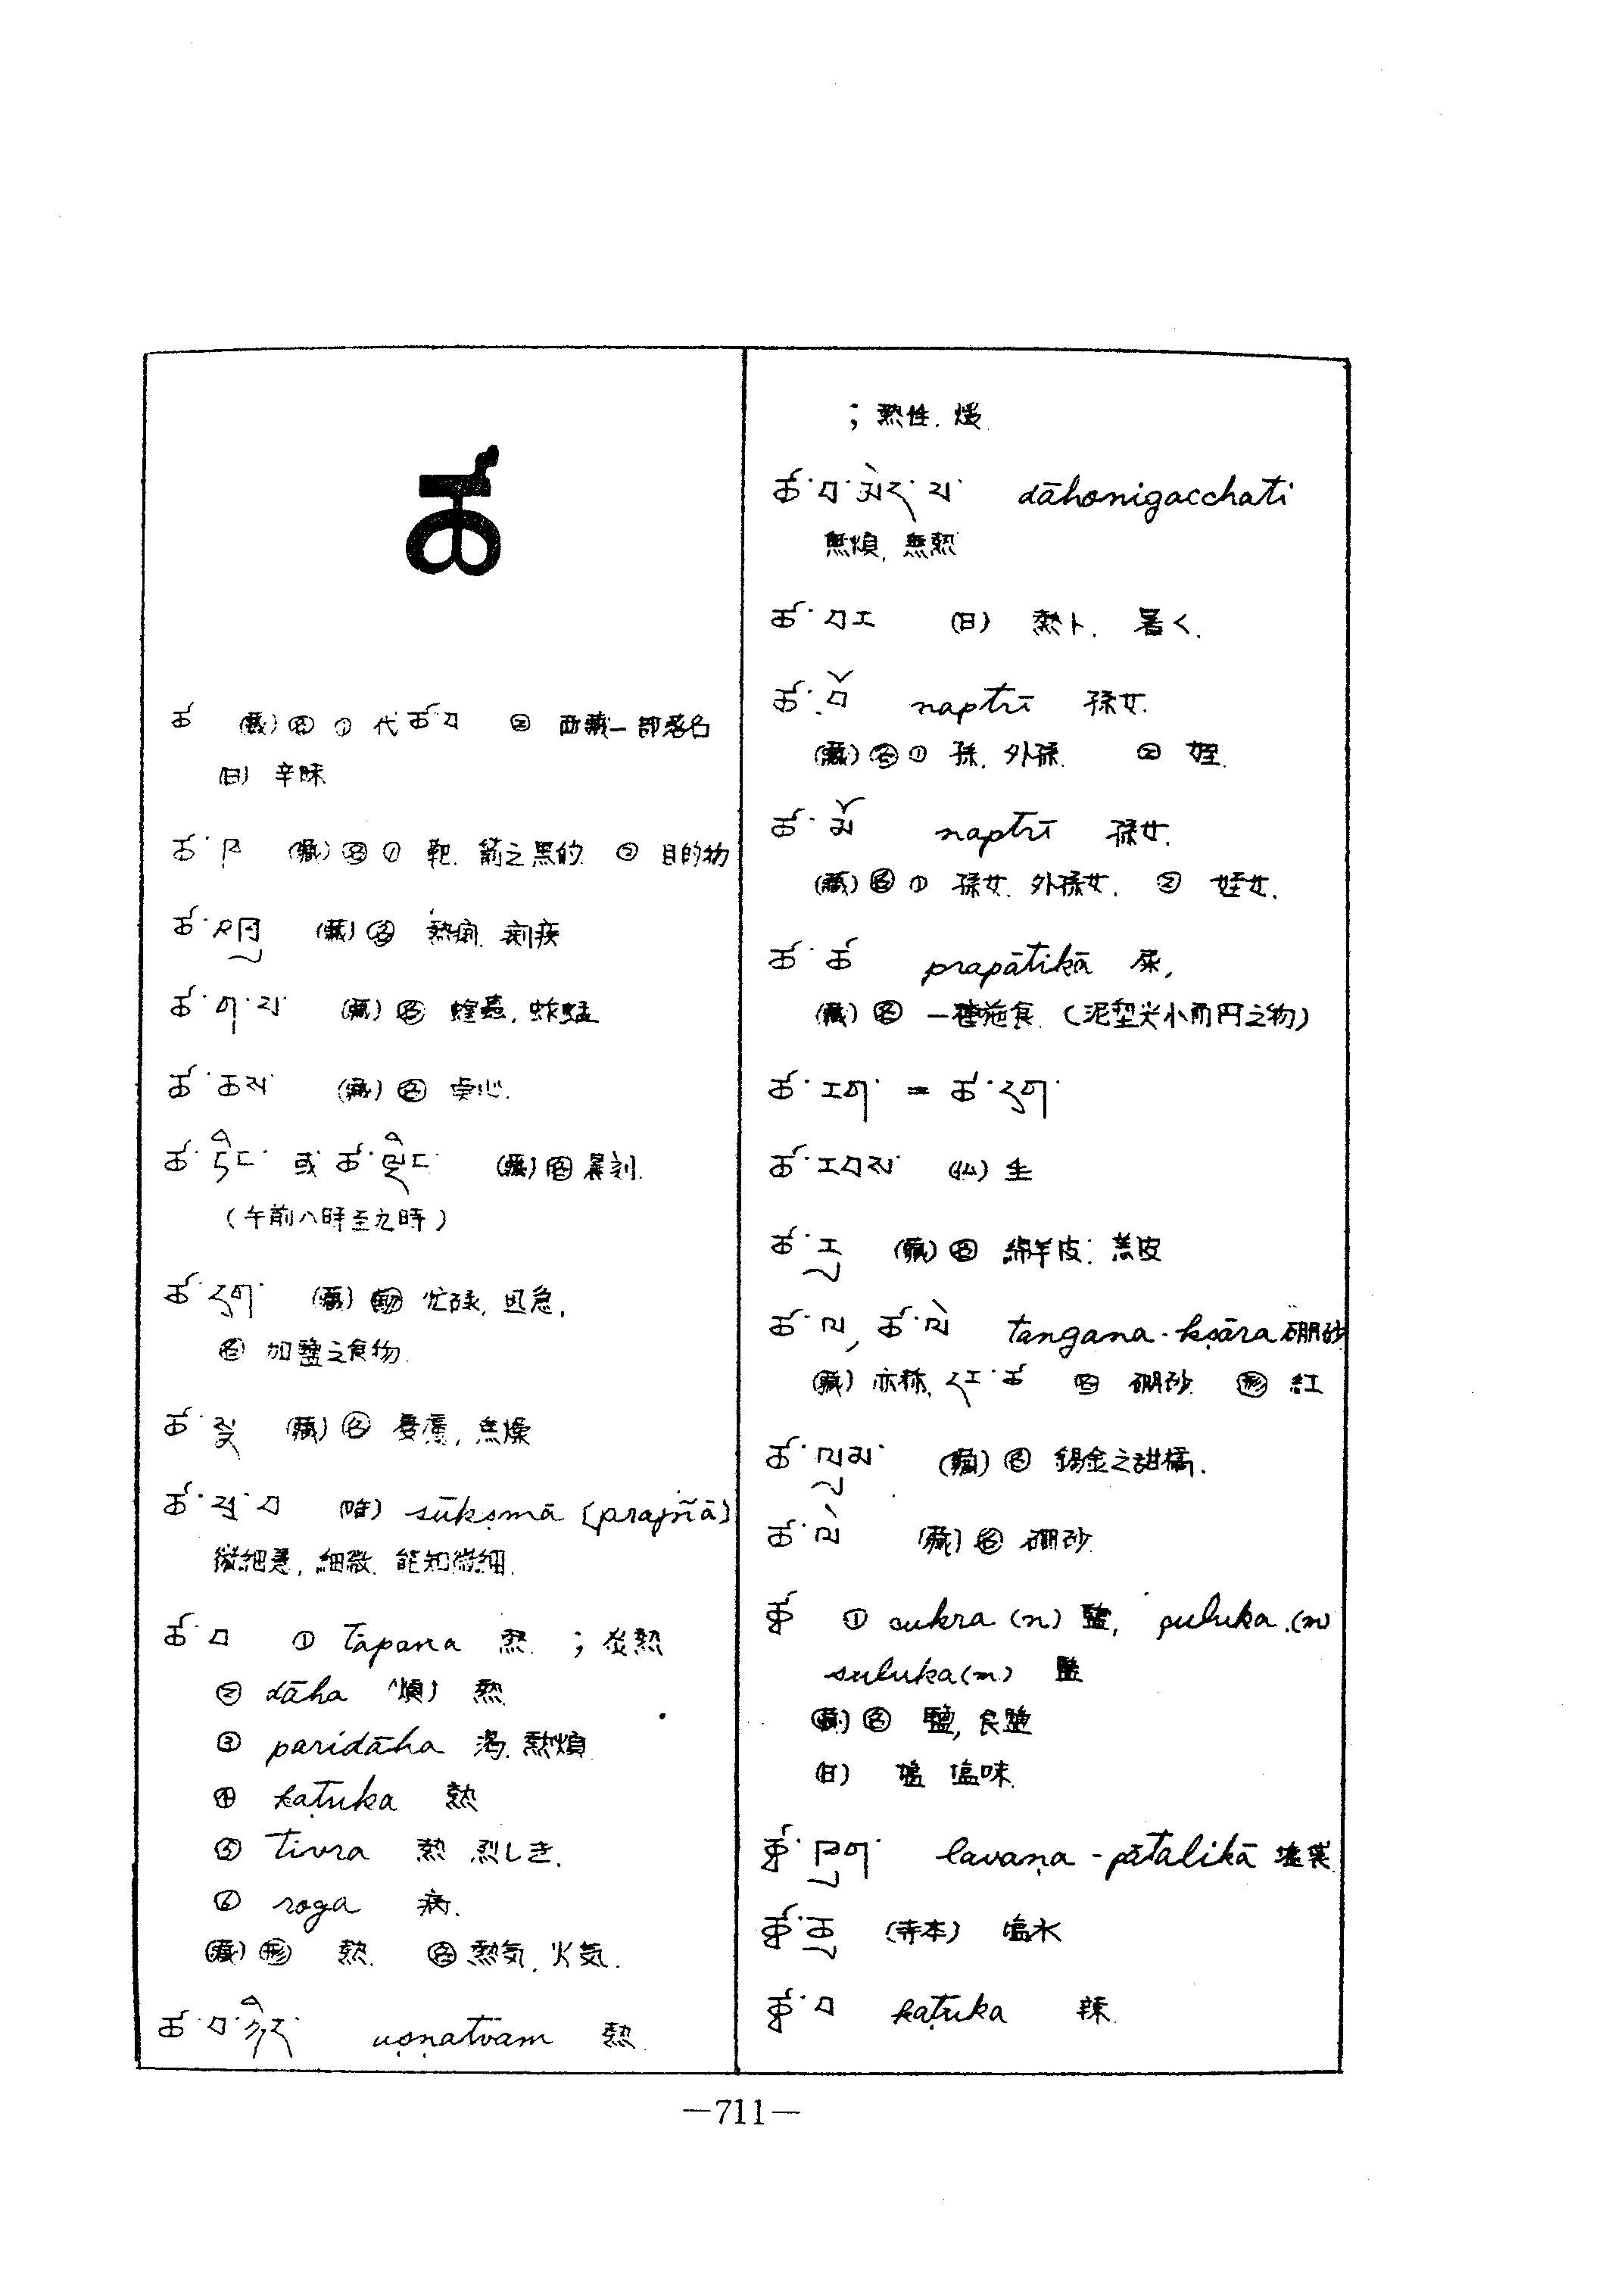 ཚ
ཚ (藏)名① 代ཚ་བ ② 西藏一部落名
(日) 辛味
ཚ་ཁ (藏)名① 靶. 箭之黑的. ② 目的物
ཚ་གཉན (藏)名 熱病. 痢疾
ཚ་ག་པ (藏)名 蝗蟲, 蚱蜢
ཚ་ཆས (藏)名
ཚ་ཏིང་ 或 ཚ་ལྡིང་ (藏)名 晨刻.
(午前八時至九時)
ཚ་དྲག་ (藏)動 忙碌, 迅急,
名 加鹽之食物.
(藏)名 憂慮, 焦燥
ཚ་སྲ་བ sūkṣmā (prajñā)
微細慧, 細微. 能知微細.
ཚ་བ ① tāpana 熱. ; 炎熱
② dāha (煩) 熱
③ paridāha 渴. 熱煩
④ kaṭuka 熱
⑤ tivra 熱 烈しき.
⑥ roga 病.
(藏)形 熱. 名 熱気, 火気.
ཚ་བ་ཉིད་ uṣṇatvam 熱.
; 熱性. 煖.
ཚ་བ་མེད་པ་ dāhonigacchati
無煩, 無熱
ཚ་བར (日) 熱ト. 暑く.
ཚ་བོ naptrī 孫女.
(藏)名① 孫. 外孫. ② 姪.
ཚ་མོ naptrī 孫女.
(藏)名① 孫女. 外孫女. ② 姪女.
ཚ་ཚ prapātikā 屎,
(藏)名 一種施食. (泥型尖小而円之物)
ཚ་རག་ = ཚ་དྲག་
ཚ་རབས་ (仏) 生
ཚ་རུ (藏)名 綿羊皮. 羔皮
ཚ་ལ, ཚ་ལེ tangana-kṣāra 硼砂
(藏) 亦稱. དར་ཚ 名 硼砂. 形 紅
ཚ་ལུམ་ (藏)名 錫金之甜橘.
ཚ་ལེ (藏)名 硼砂.
ཚྭ ① cukra (n) 鹽, śuluka.(n)
suluka(n) 鹽
(藏)名 鹽, 食鹽
(日) 塩 塩味.
ཚྭ་ཁུག་ lavaṇa-pātalikā 塩袋.
ཚྭ་ཆུ (寺本) 塩水
ཚྭ་བ kaṭuka 辣.
—711—